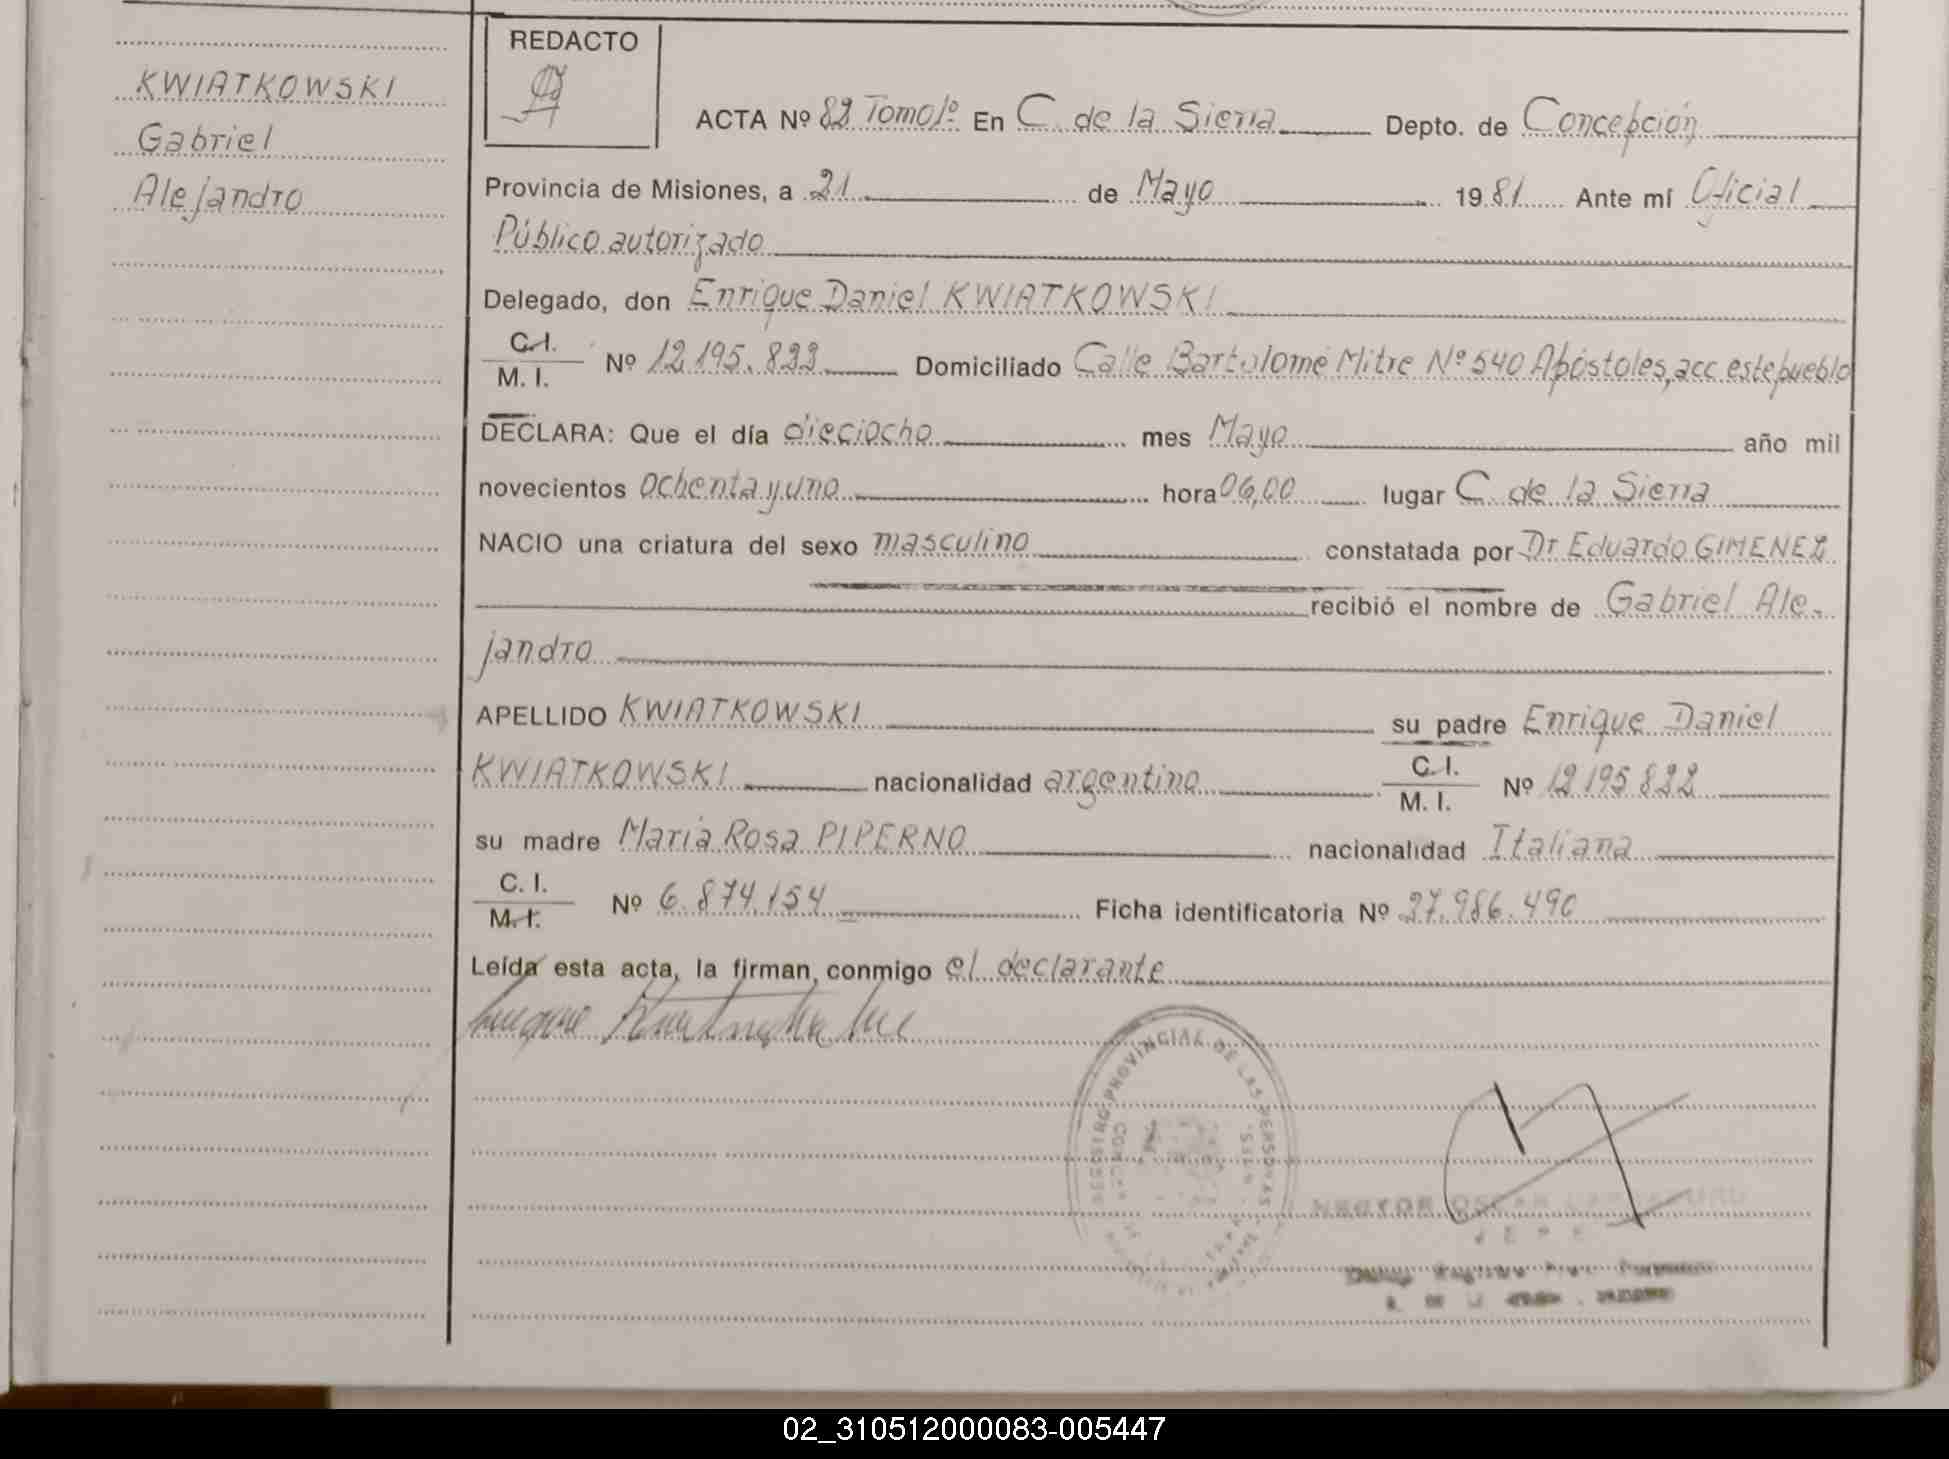 KWIATKOWSKI
Gabriel
Alejandro
REDACTO
ACTA Nº 82 Tomo 1º En C. de la Sierra Depto. de Concepción
Provincia de Misiones, a 21 de Mayo 1981 Ante mí Oficial
Público autorizado
Delegado, don Enrique Daniel KWIATKOWSKI
C.I.
M. I.
Nº 12.195.822 Domiciliado Calle Bartolomé Mitre Nº 540 Apóstoles, acc. este pueblo
DECLARA: Que el día dieciocho mes Mayo año mil
novecientos ochenta y uno hora 06,00 lugar C. de la Sierra
NACIO una criatura del sexo masculino constatada por Dr Eduardo GIMENEZ
recibió el nombre de Gabriel Ale-
jandro
APELLIDO KWIATKOWSKI su padre Enrique Daniel
KWIATKOWSKI nacionalidad argentino C.I. M. I. Nº 12195822
su madre María Rosa PIPERNO nacionalidad Italiana
C. I.
M. I.
Nº 6.874.154 Ficha identificatoria Nº 27.986.490
Leída esta acta, la firman, conmigo el declarante
REGISTRO PROVINCIAL DE LAS PERSONAS
02_310512000083-005447